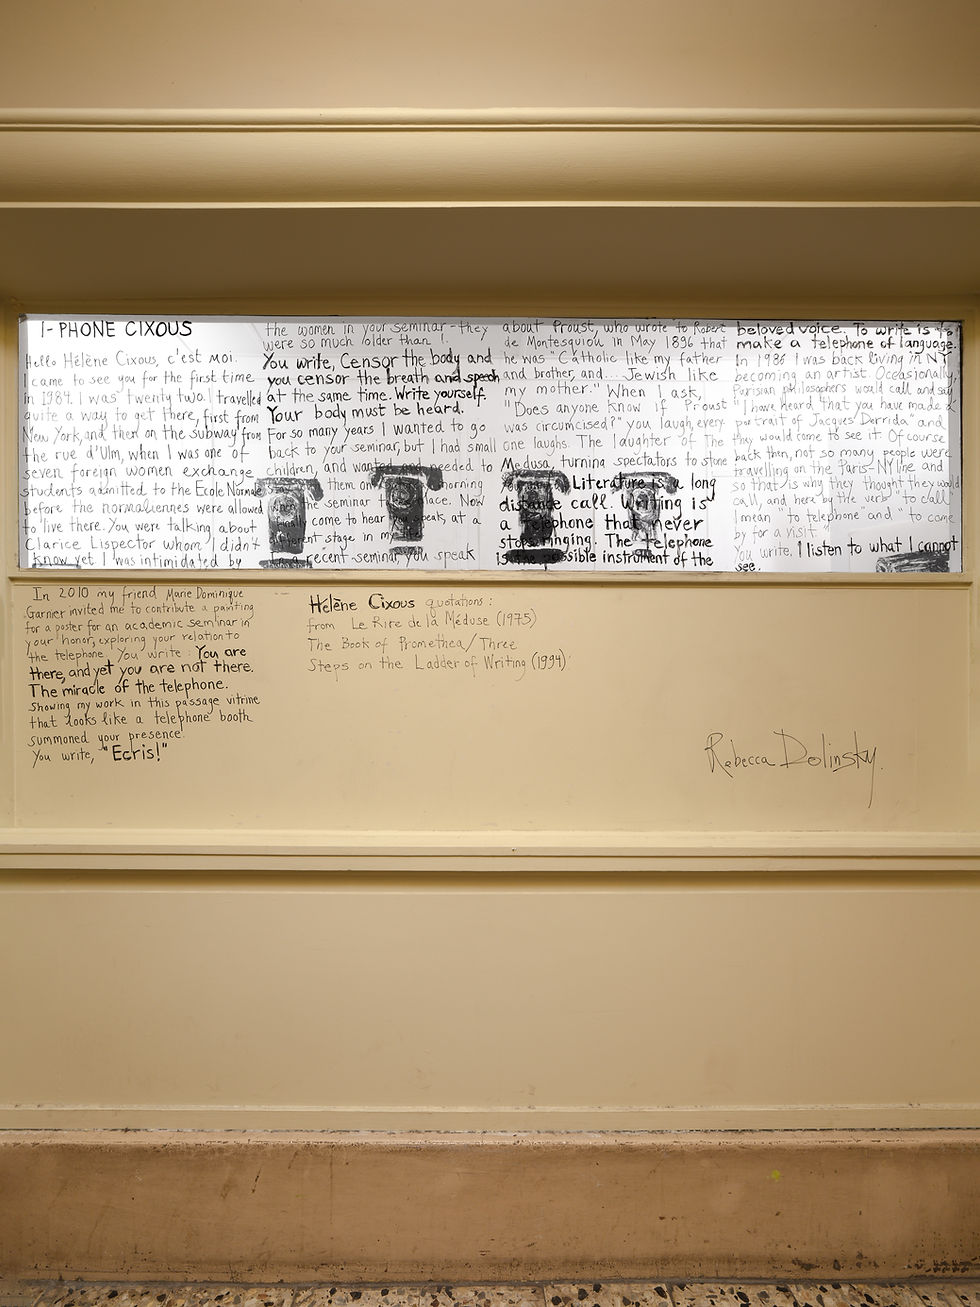 I-PHONE CIXOUS
Hello Hélène Cixous, c'est moi.
I came to see you for the first time
in 1984. I was twenty two. I travelled
quite a way to get there, first from
New York, and then on the subway from
the rue d'Ulm, when I was one of
seven foreign women exchange
students admitted to the Ecole Normale
before the normaliennes were allowed
to live there. You were talking about
Clarice Lispector whom I didn't
know yet I was intimidated by
the women in your seminar - they
were so much older than I.
You write, Censor the body and
you censor the breath and speech
at the same time. Write yourself.
Your body must be heard.
For so many years I wanted to go
back to your seminar, but I had small
children, and wanted and needed to
them on morning
when the seminar place. Now
I finally come to hear you speak, at a
different stage in my
recent seminar, you speak
about Proust, who wrote to Robert
de Montesquiou in May 1896 that
he was "Catholic like my father
and brother, and... Jewish like
my mother." When I ask,
"Does anyone know if Proust
was circumcised?" you laugh, every
one laughs. The laughter of the
Medusa, turning spectators to stone
Literature is a long
distance call. Writing is
a telephone that never
stops ringing. The telephone
is the possible instrument of the
beloved voice. To write is to
make a telephone of language.
In 1986 I was back living in NY
becoming an artist. Occasionally,
Parisian philosophers would call and say,
"I have heard that you have made a
portrait of Jacques Derrida" and
they would come to see it. Of course
back then, not so many people were
travelling on the Paris-NY line and
so that is why they thought they would
call, and here by the verb "to call"
I mean "to telephone" and "to come
by for a visit."
You write. I listen to what I cannot
see.
In 2010 my friend Marie Dominique
Garnier invited me to contribute a painting
for a poster for an academic seminar in
your honor, exploring your relation to
the telephone. You write: You are
there, and yet you are not there.
The miracle of the telephone.
Showing my work in this passage vitrine
that looks like a telephone booth
summoned your presence.
You write, "Ecris!"
Hélène Cixous quotations:
from Le Rire de la Méduse (1975)
The Book of Promethea/Three
Steps on the Ladder of Writing (1994)
Rebecca Dolinsky.